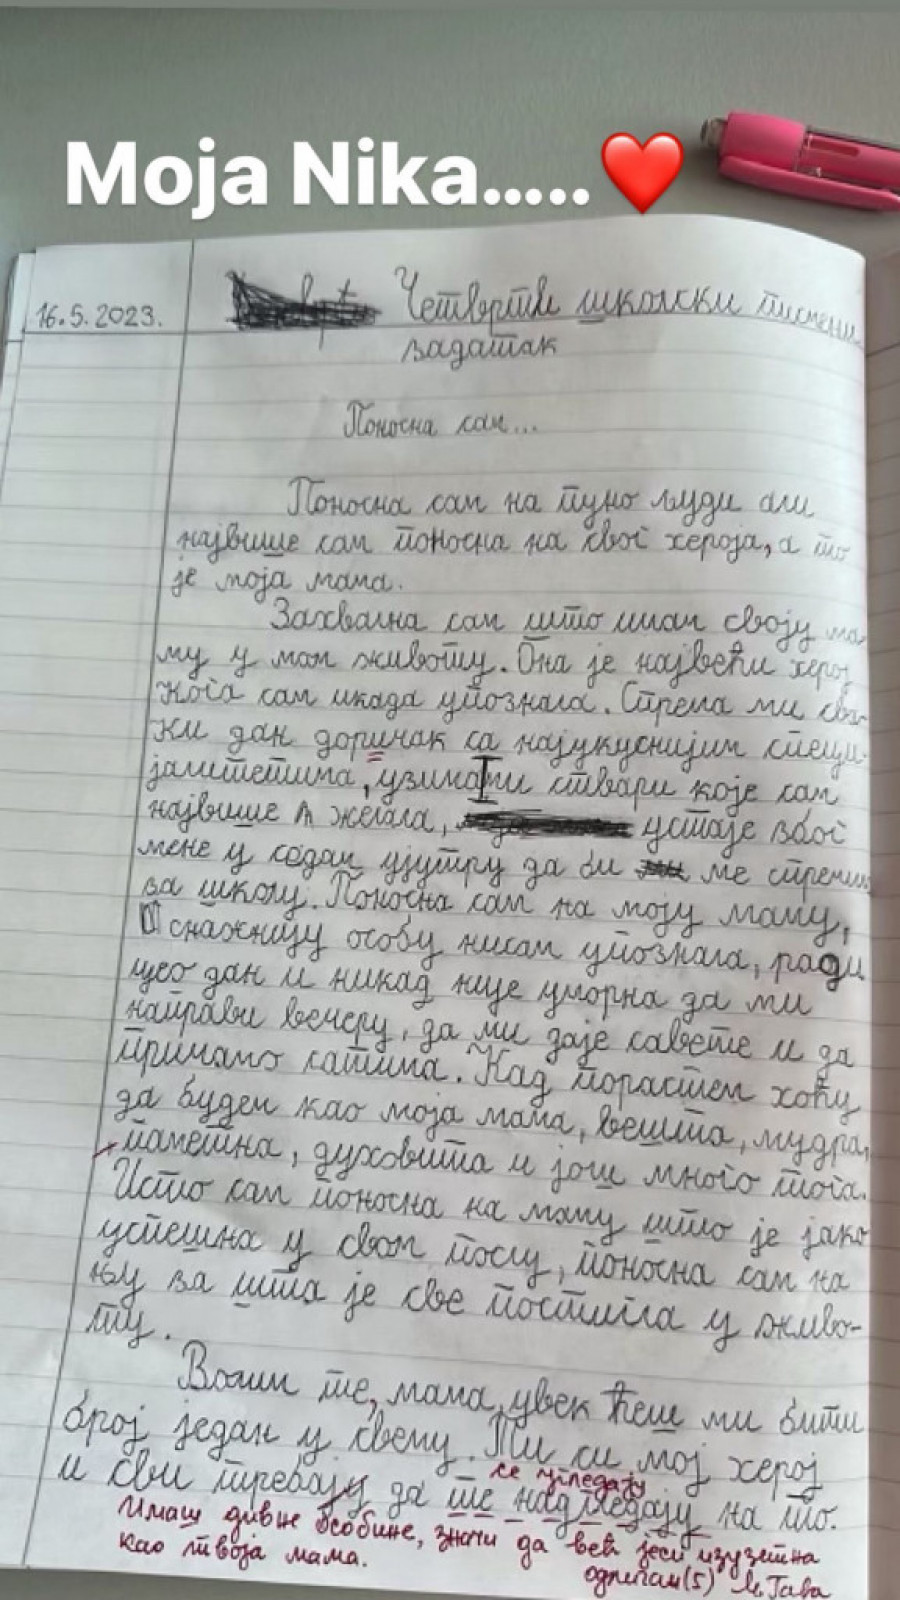 Moja Nika.....❤️
16.5.2023.
Четврти школски писмени
задатак
Поносна сам...
Поносна сам на пуно људи али
највише сам поносна на свог хероја, а то
је моја мама.
Захвална сам што имам своју ма
му у мом животу. Она је највећи херој
кога сам икада упознала. Спрема ми сва-
ки дан доручак са најукуснијим специ-
јалитетима, узима ми ствари које сам
највише желела, устаје због
мене у седам ујутру да би ме спремила
за школу. Поносна сам на моју маму,
снажнију особу нисам упознала, ради
цео дан и никад није уморна да ми
направи вечеру, да ми даје савете и да
причамо сатима. Кад порастем хоћу
да будем као моја мама, вешта, мудра,
паметна, духовита и још много тога.
Исто сам поносна на маму што је јако
успешна у свом послу, поносна сам на
њу за шта је све постигла у живо-
ту.
Волим те, мама, увек ћеш ми бити
број један у свему. Ти си мој херој
се угледају
и сви требају да те надгледају на то.
Имаш дивне особине, значи да већ јеси изузетна
као твоја мама.
одличан (5)